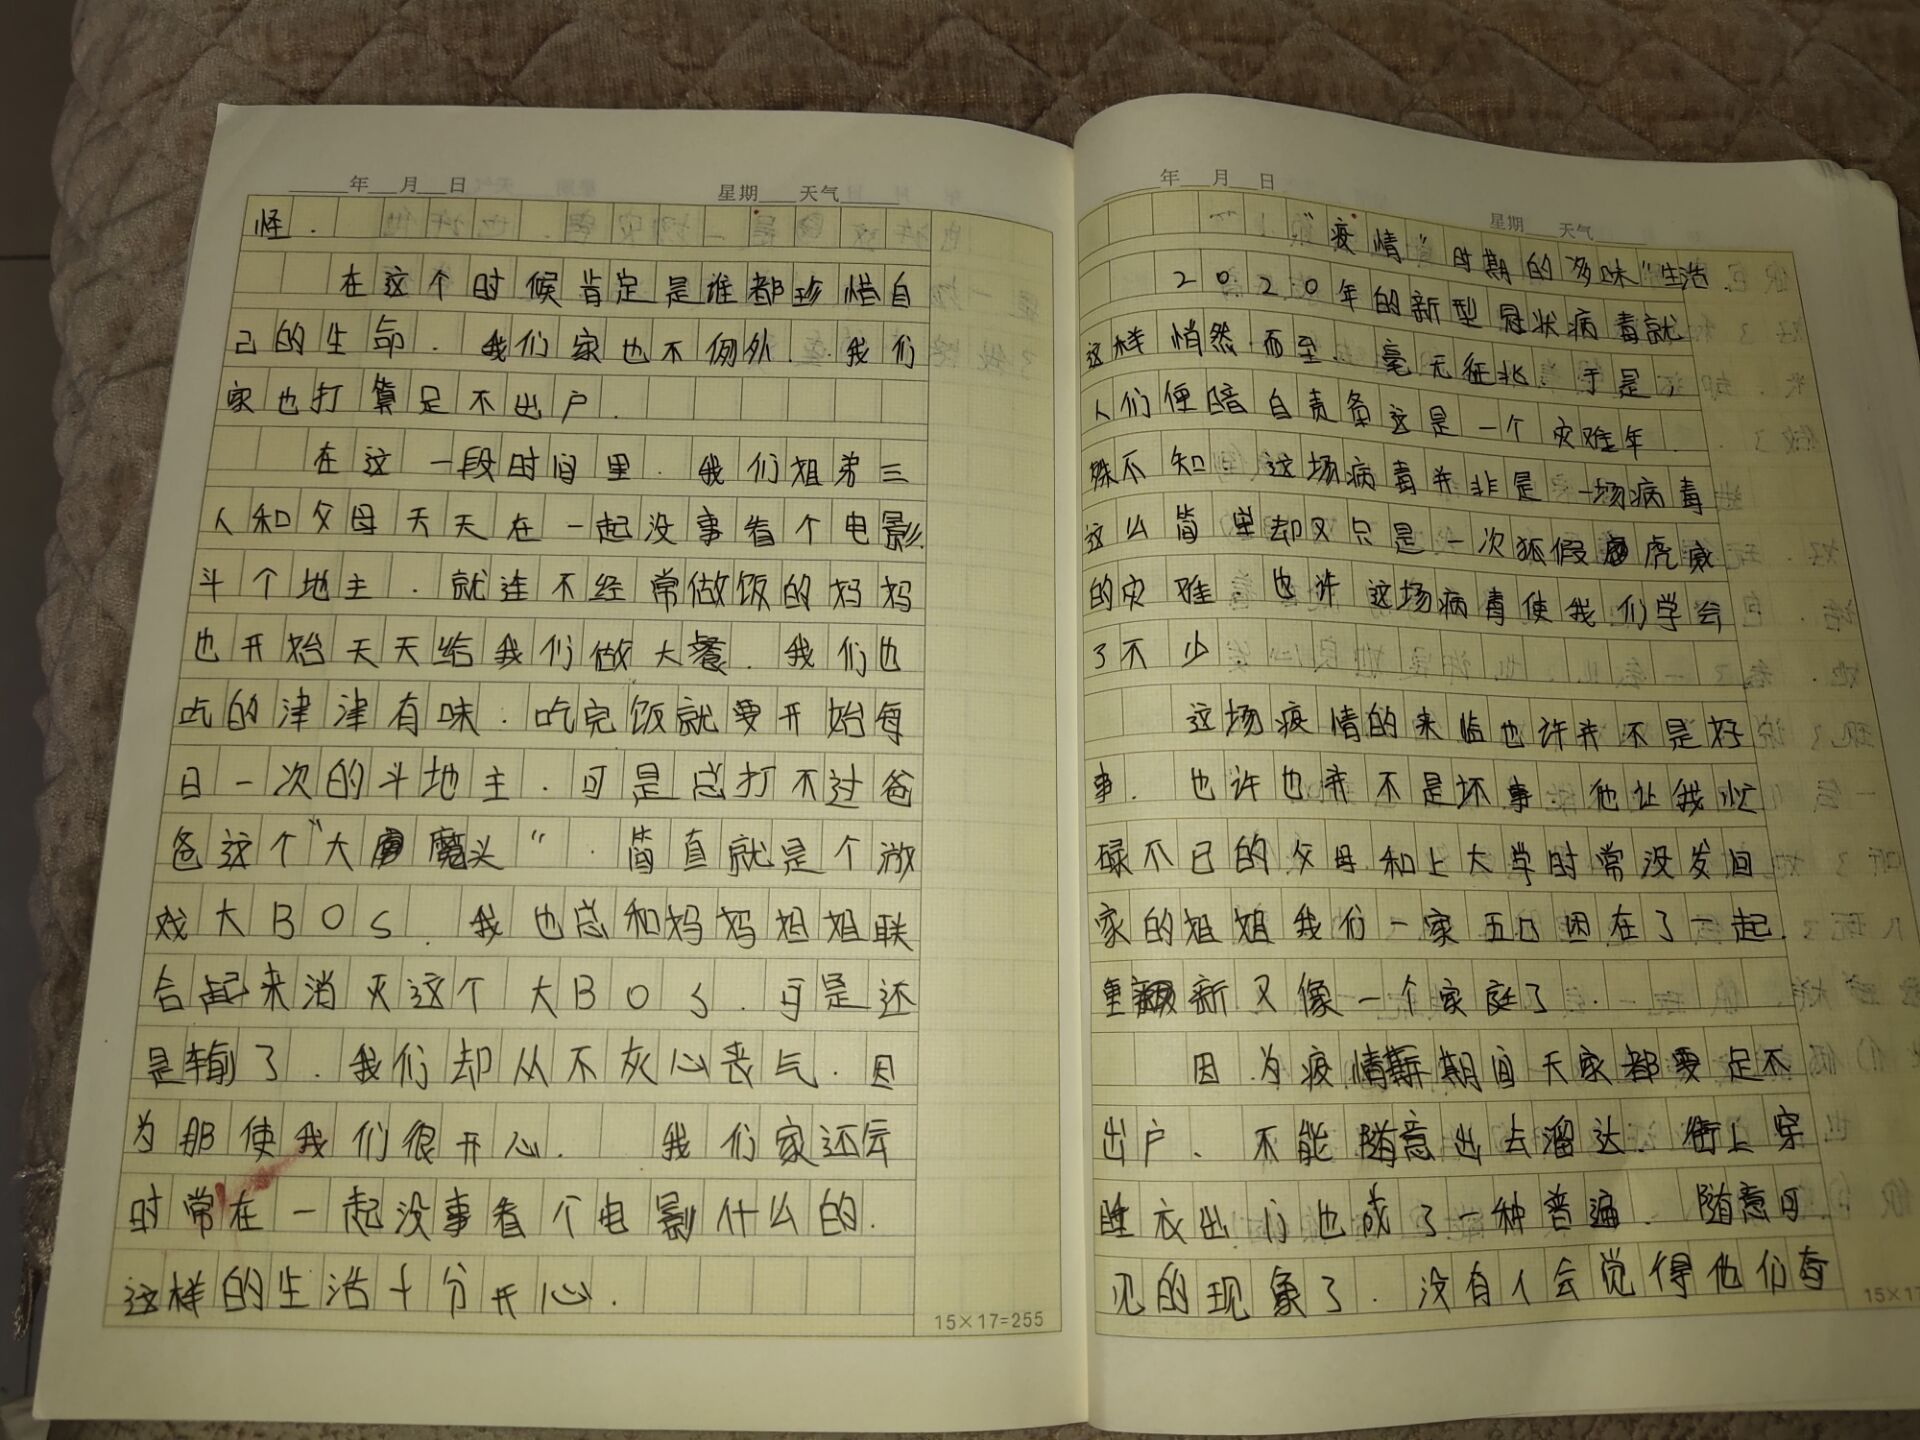 年 月 日 星期 天气
怪.
在这个时候肯定是谁都珍惜自
己的生命. 我们家也不例外. 我们
家也打算足不出户.
在这一段时间里. 我们姐弟三
人和父母天天在一起没事看个电影.
斗个地主. 就连不经常做饭的妈妈
也开始天天给我们做大餐. 我们也
吃的津津有味. 吃完饭就要开始每
日一次的斗地主. 可是总打不过爸
爸这个"大魔头". 简直就是个游
戏大BOS. 我也总和妈妈姐姐联
合起来消灭这个大BOS. 可是还
是输了. 我们却从不灰心丧气. 因
为那使我们很开心. 我们家还会
时常在一起没事看个电影什么的.
这样的生活十分开心.
15×17=255
年 月 日
星期 天气
"疫情"时期的"多味"生活.
2020年的新型冠状病毒就
这样悄然而至. 毫无征兆. 于是,
人们便暗自责备这是一个灾难年.
殊不知. 这场病毒并非是一场病毒
这么简单却又只是一次狐假虎威
的灾难 也许这场病毒使我们学会
了不少
这场疫情的来临也许并不是好
事. 也许也并不是坏事. 他让我忙
碌不已的父母和上大学时常没发回
家的姐姐我们一家五口困在了一起.
重新又像一个家庭了.
因为疫情期间大家都要足不
出户、不能随意出去溜达. 街上穿
睡衣出门也成了一种普遍. 随意可
见的现象了. 没有人会觉得他们奇
15×17